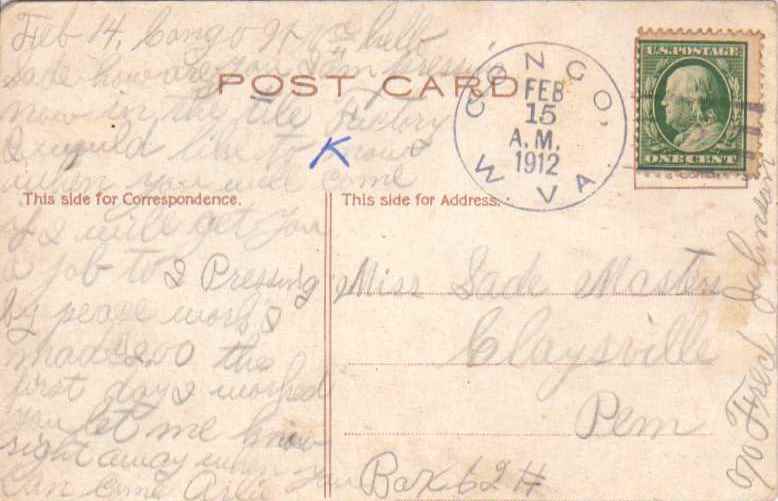 Feb 14, Congo W Va hello
Sade how are you I am
POST CARD
now in the tile
I would like to know
when you will come
This side for Correspondence.
if I will get you
a job to I Pressing
by peace work I
mad $2.00 the
first day I worked
you let me know
right away when you
can come
CONGO,
FEB
15
A.M.
1912
W. VA.
U.S. POSTAGE
ONE CENT
K
This side for Address.
Miss Sade Masters
Claysville
Penn
Box 62 H
c/o Fred Johnson